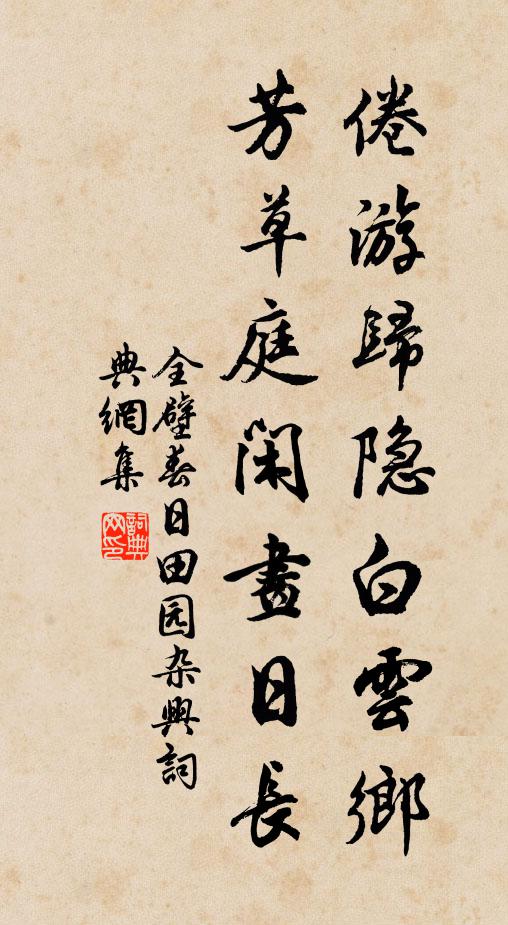 倦游歸隐白雲鄉
芳草庭闲晝日長
全璧春日田园杂興詞
典網集
詞典
网印